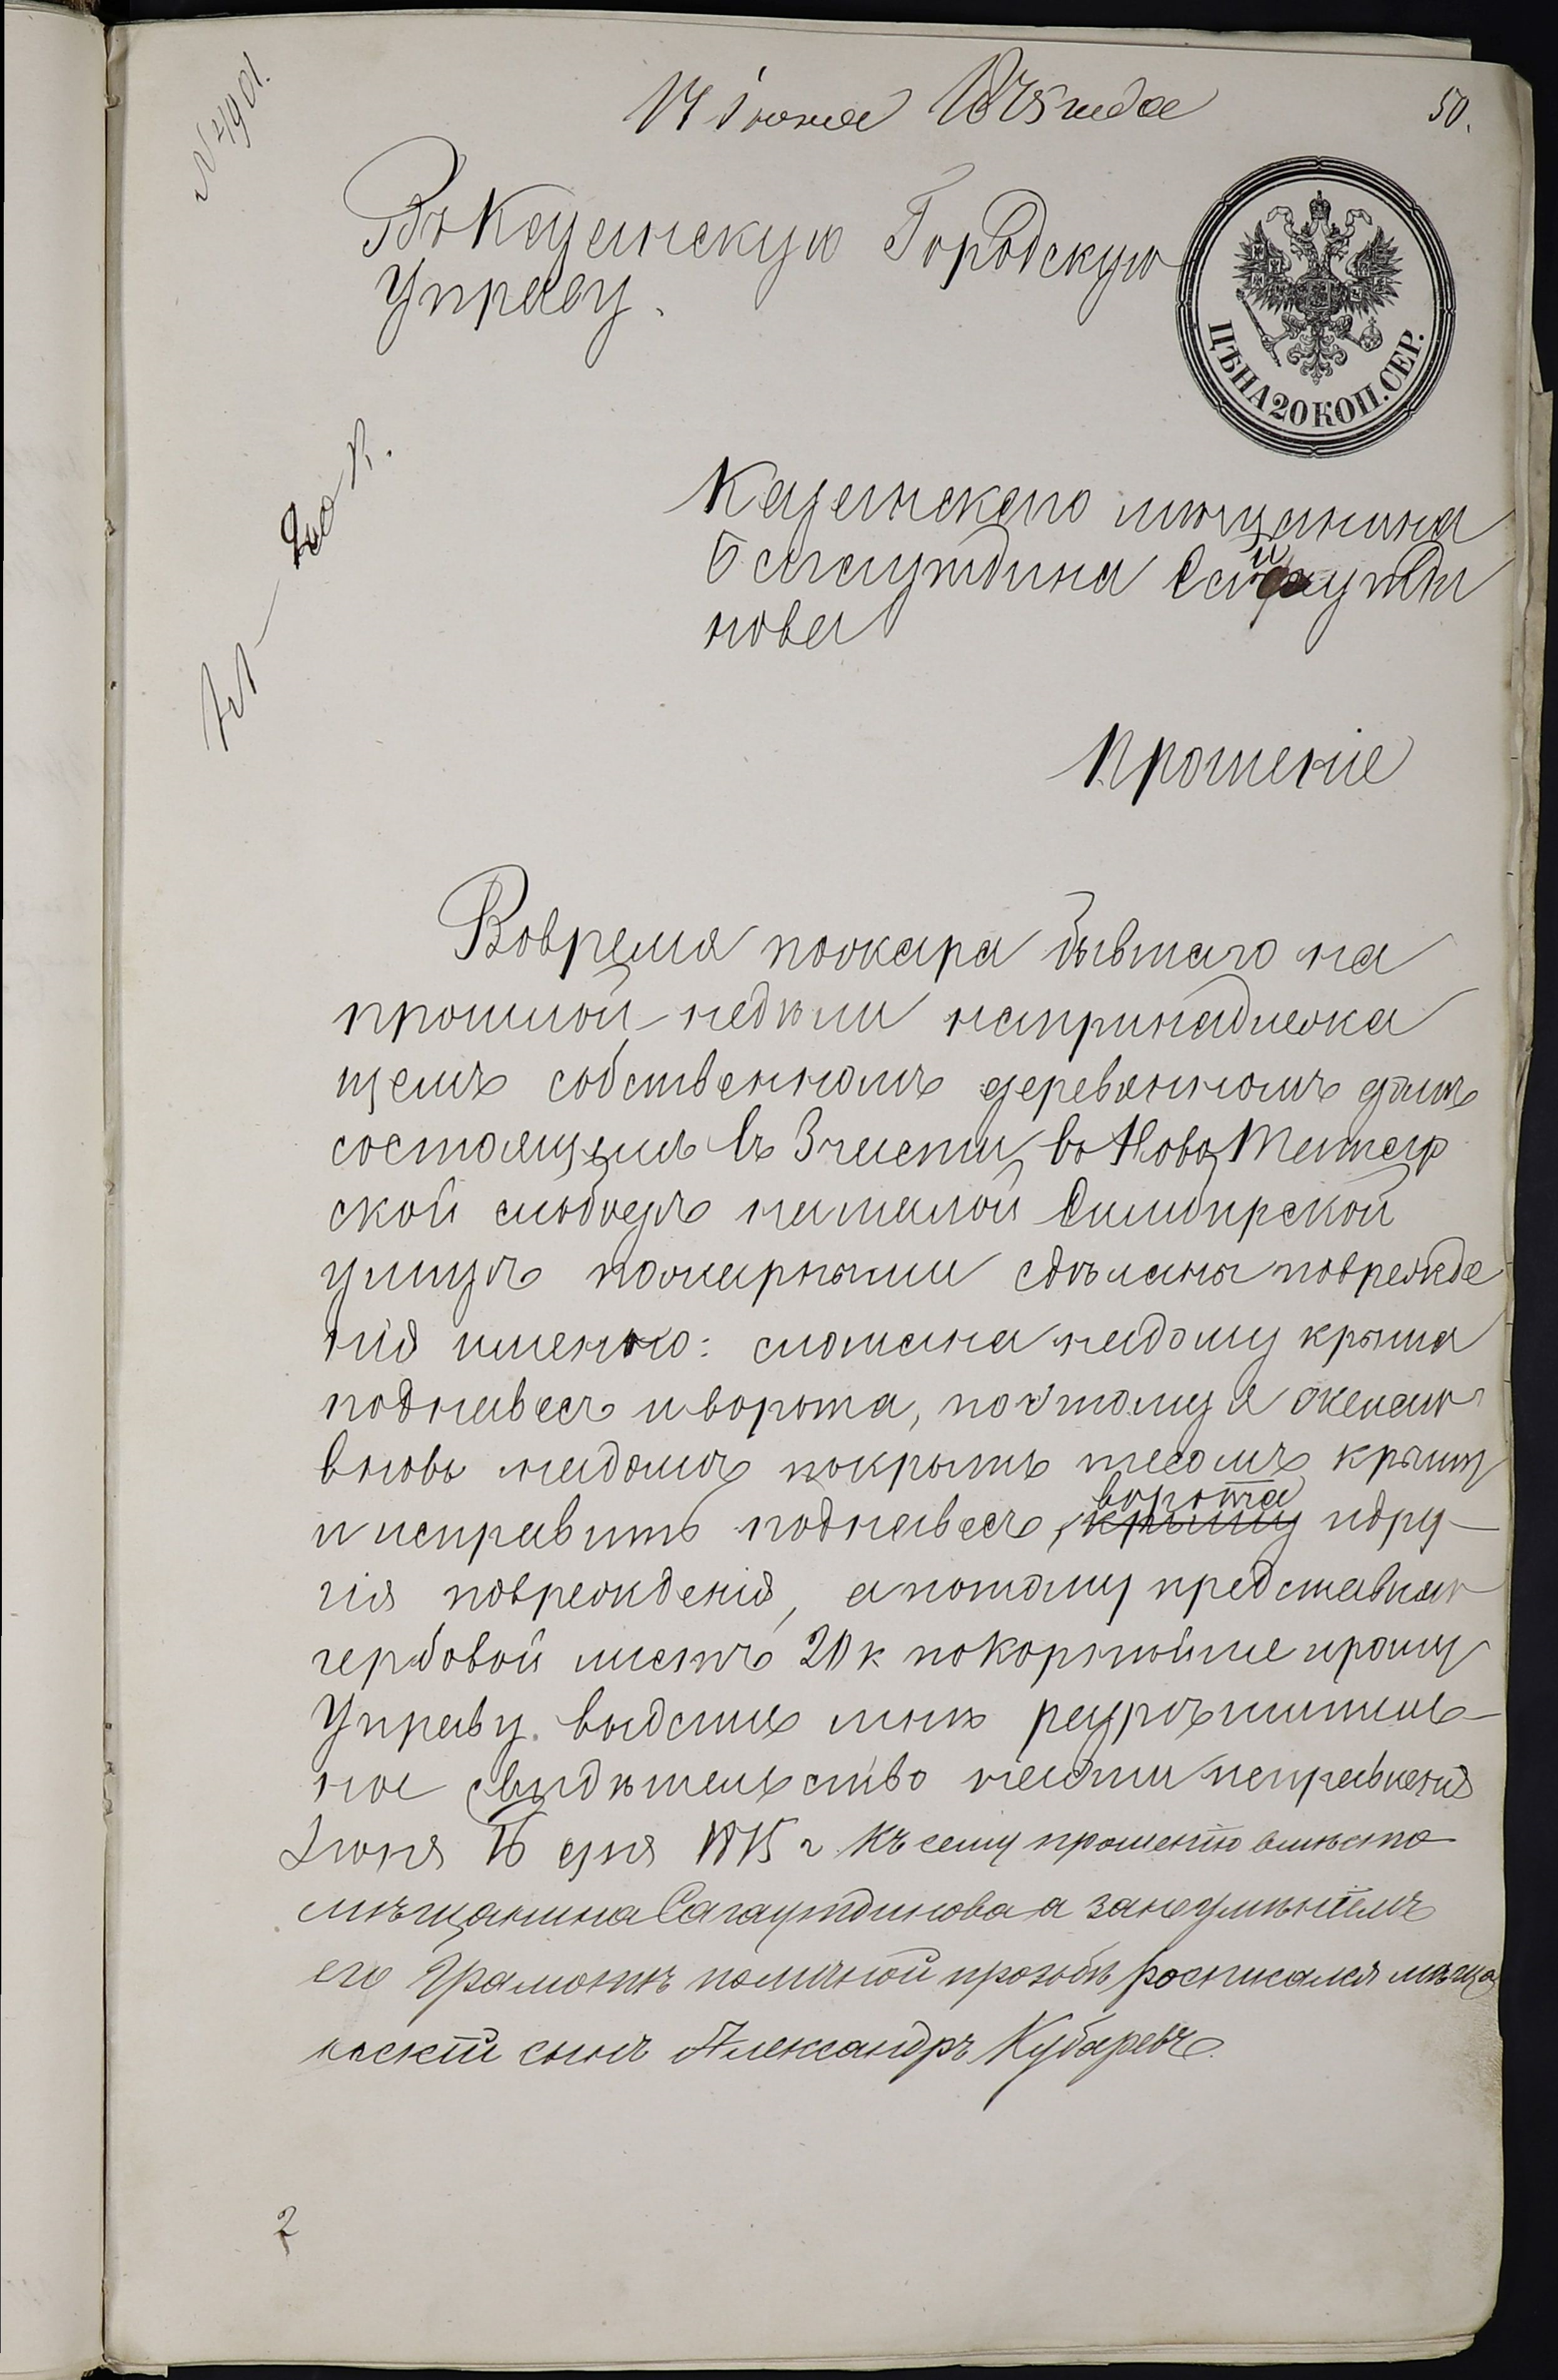 № 4901.
17 Іюня 1875 года
50.
Въ Казанскую Городскую
Управу.
ЦѢНА 20 КОП. СЕР.
20 к.
Казанскаго мещанина
новa
Прошеніе
Вовремя пожара бывшаго на
прошлой недѣли напринадлежа
щемъ собственномъ деревянномъ домѣ
состоящемъ въ 3 части, въ Ново Татар
ской слободѣ на малой Симбирской
улицѣ пожарными сдѣланы поврежде
нія именно: сломана на дому крыша
поднавесъ и ворота, поэтому я желаю
вновь на домѣ покрыть тесомъ крышу
и исправить поднавесъ, крышу ворота и дру-
гія поврежденія, а потому представляю
гербовой листъ 20 к покорнѣйше прошу
Управу выдать мнѣ разрѣшитель-
ное свидѣтельство на эти исправленія
Іюня 16 дня 1875 г. Къ сему прошенію вмѣсто
мѣщанина Сагаутдинова а за неумѣніемъ
его грамотѣ по личной прозьбѣ росписался мѣща
нскій сынъ Александръ Кубаревъ
2